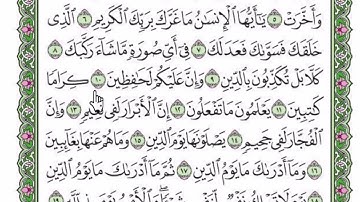 وَأَخَّرَتْ ۝٥ يَٰٓأَيُّهَا ٱلْإِنسَٰنُ مَا غَرَّكَ بِرَبِّكَ ٱلْكَرِيمِ ۝٦ ٱلَّذِى
خَلَقَكَ فَسَوَّىٰكَ فَعَدَلَكَ ۝٧ فِىٓ أَىِّ صُورَةٍ مَّا شَآءَ رَكَّبَكَ ۝٨
كَلَّا بَلْ تُكَذِّبُونَ بِٱلدِّينِ ۝٩ وَإِنَّ عَلَيْكُمْ لَحَٰفِظِينَ ۝١٠ كِرَامًا
كَٰتِبِينَ ۝١١ يَعْلَمُونَ مَا تَفْعَلُونَ ۝١٢ إِنَّ ٱلْأَبْرَارَ لَفِى نَعِيمٍ ۝١٣ وَإِنَّ
ٱلْفُجَّارَ لَفِى جَحِيمٍ ۝١٤ يَصْلَوْنَهَا يَوْمَ ٱلدِّينِ ۝١٥ وَمَا هُمْ عَنْهَا بِغَآئِبِينَ
۝١٦ وَمَآ أَدْرَىٰكَ مَا يَوْمُ ٱلدِّينِ ۝١٧ ثُمَّ مَآ أَدْرَىٰكَ مَا يَوْمُ ٱلدِّينِ
۝١٨ يَوْمَ لَا تَمْلِكُ نَفْسٌ